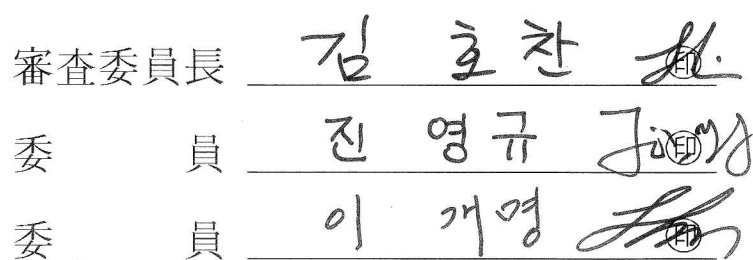 審査委員長 김 호 찬 印
委 員 진 영 규 印
委 員 이 개명 印